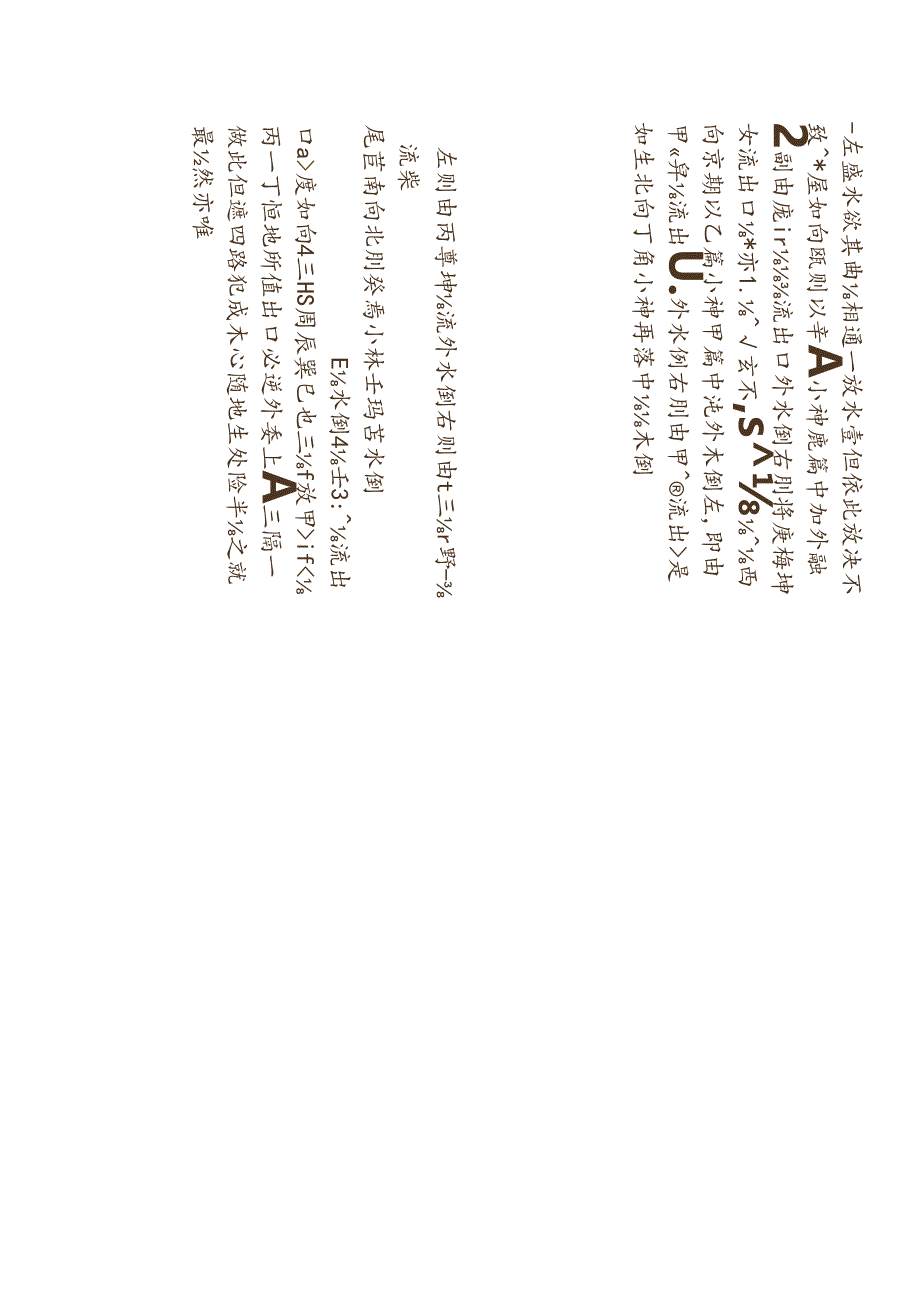 -左盛水欲其曲⅛相通一放水壹但依此放决不
致^*屋如向瓯则以辛A小神鹿篇中加外融
2副由庞ir⅛⅛⅜流出口外水倒右刖将庚梅坤
女流出口⅛*亦1.⅛^√玄不,S^⅛⅛^⅛两
向京期以乙篇小神甲篇中沌外木倒左,即由
甲«舁⅛流出U.外水例右刖由甲^®流出>是
如生北向丁角小神再落中⅛⅛木倒
左则由丙尊坤⅛流外水倒右则由t三⅛r野-⅜
流柴
尾苣南向北刖癸焉小林壬玛苫水倒
E⅛水倒4⅛壬3:^⅛流出
口a>度如向4三HS周辰巽已也三⅛f放甲>if<⅛
两一丁恒地所值出口必逆外委上A三隔一
做此但遮四路犯成木心随地生处险半⅛之就
最½然亦唯